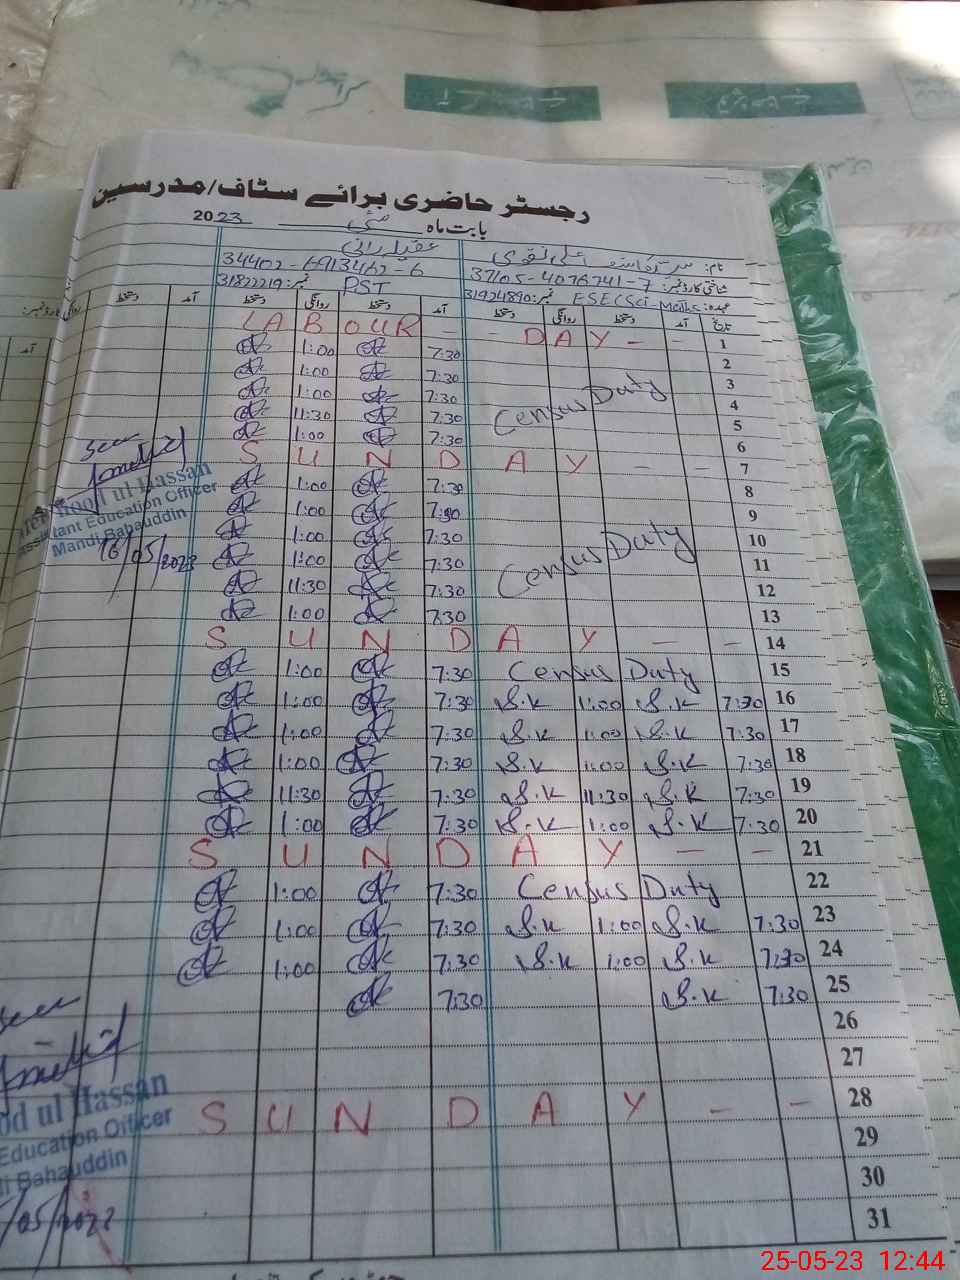 رجسٹر حاضری برائے سٹاف/مدرسین
بابت ماہ مئی 2023
نام:
عقیلہ رانی
شناختی کارڈ نمبر: 37105-4076741-7
34402-6913462-6
عہدہ: ESE(Sci-Maths نمبر: 31924890
PST نمبر: 31822219
تاریخ آمد دستخط روانگی دستخط آمد دستخط روانگی دستخط آمد دستخط
1 LABOUR - - DAY - -
2 1:00 7:30
3 1:00 7:30
4 1:00 7:30
5 11:30 7:30
6 1:00 7:30
Census Duty
7 SUNDAY - -
8 1:00 7:30
9 1:00 7:30
10 1:00 7:30
11 1:00 7:30
12 11:30 7:30
13 1:00 7:30
Census Duty
14 SUNDAY - -
15 1:00 7:30 Census Duty
16 1:00 7:30 S.K 1:00 S.K 7:30
17 1:00 7:30 S.K 1:00 S.K 7:30
18 1:00 7:30 S.K 1:00 S.K 7:30
19 11:30 7:30 S.K 11:30 S.K 7:30
20 1:00 7:30 S.K 1:00 S.K 7:30
21 SUNDAY - -
22 1:00 7:30 Census Duty
23 1:00 7:30 S.K 1:00 S.K 7:30
24 1:00 7:30 S.K 1:00 S.K 7:30
25 7:30 S.K 7:30
26
27
28 SUNDAY - -
29
30
31
seen
ood ul Hassan
Assistant Education Officer
Mandi Bahauddin
16/05/2023
seen
od ul Hassan
Education Officer
di Bahauddin
/05/2023
25-05-23 12:44